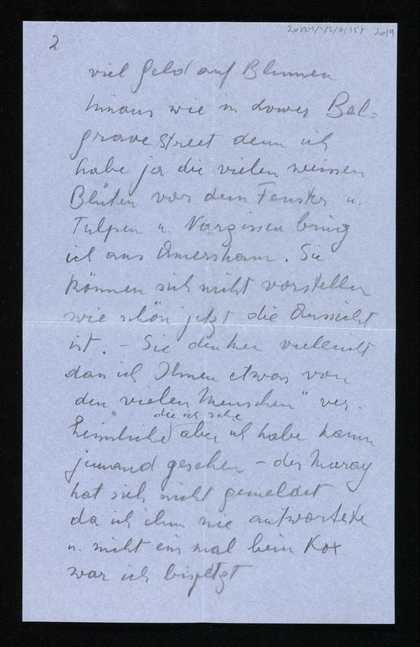 2
viel Geld auf Blumen
hinaus wie in Lower Bel-
grave Street denn ich
habe ja die vielen weissen
Blüten vor dem Fenster u.
Tulpen u. Narzissen bring
ich aus Amersham. Sie
können sich nicht vorstellen
wie schön jetzt die Aussicht
ist. – Sie denken vielleicht
dass ich Ihnen etwas von
den "vielen Menschen" ver-
die ich sehe
heimliche aber ich habe kaum
jemand gesehen – der Maray
hat sich nicht gemeldet
da ich ihm nie antwortete
u. nicht einmal beim Kox
war ich bis jetzt